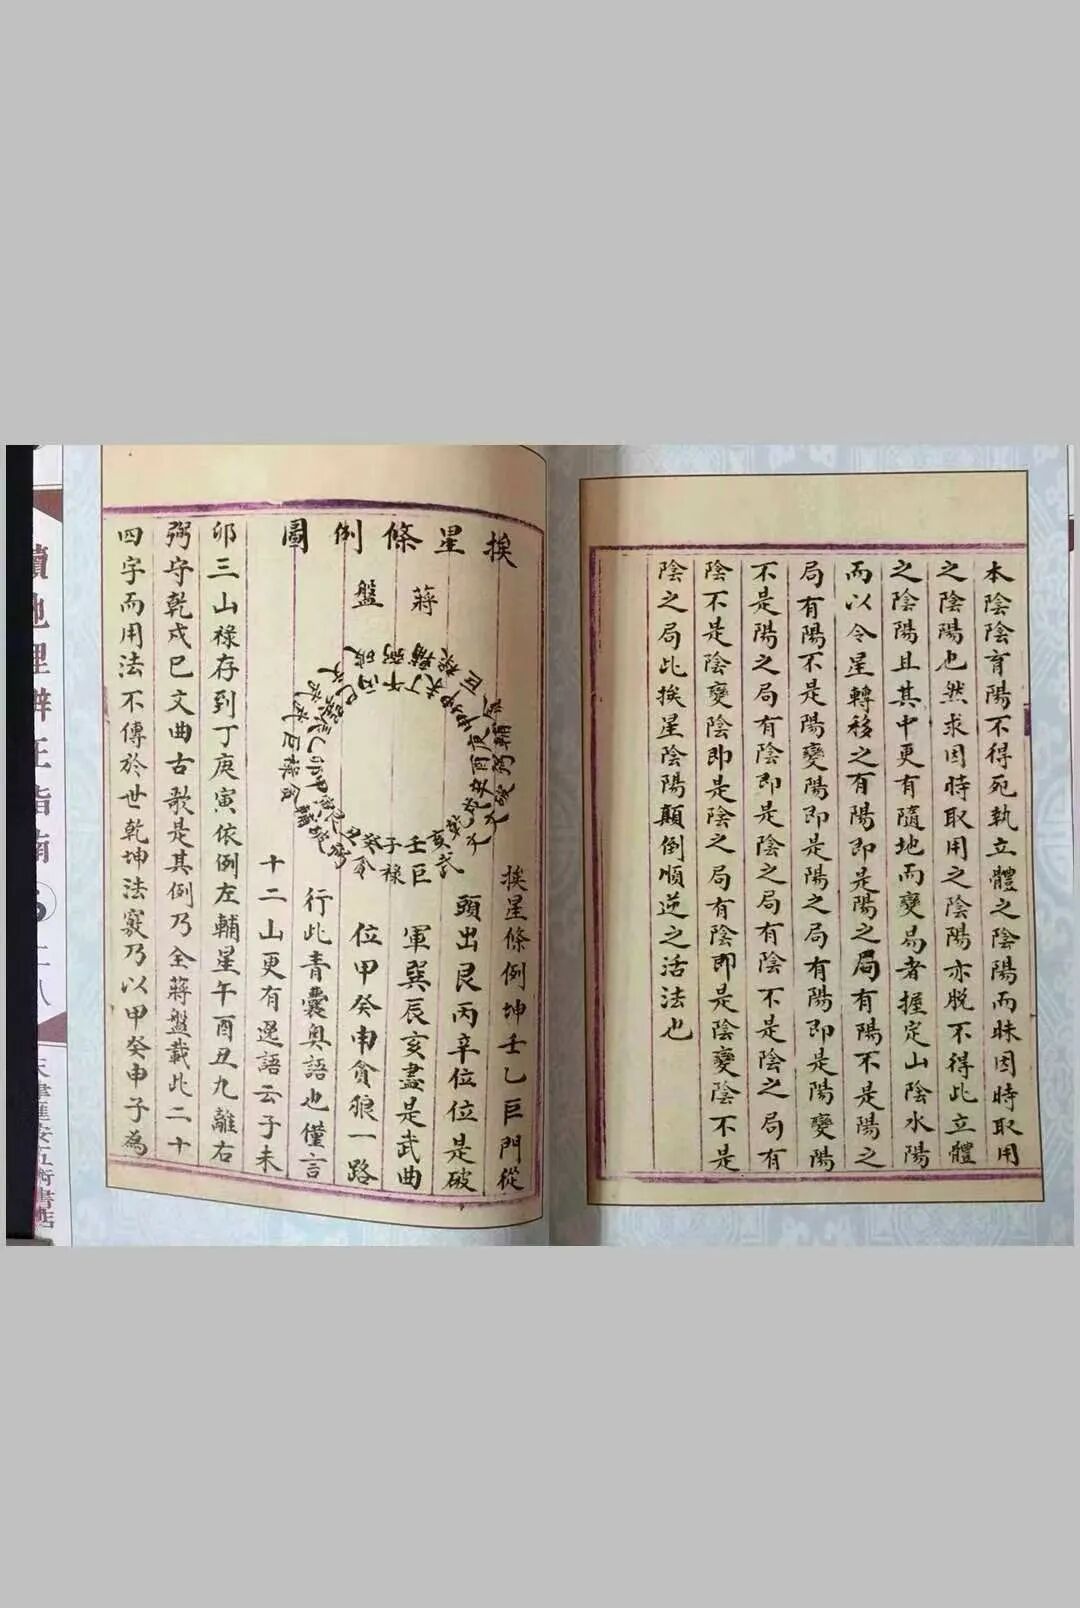 本陰陰育陽不得死執立體之陰陽而昧因時取用
之陰陽也然求因時取用之陰陽亦脱不得此立體
之陰陽且其中更有隨地而變易者握定山陰水陽
而以令星轉移之有陽即是陽之局有陽不是陽之
局有陽不是陽變陽即是陽之局有陽即是陽變陽
不是陽之局有陰即是陰之局有陰不是陰之局有
陰不是陰變陰即是陰之局有陰即是陰變陰不是
陰之局此挨星陰陽顛倒順逆之活法也
挨星條例圖
蔣盤
挨星條例坤壬乙巨門從
頭出艮丙辛位位是破
軍巽辰亥盡是武曲
位甲癸申貪狼一路
行此青囊奥語也僅言
十二山更有逸語云子未
卯三山禄存到丁庚寅依例左輔星午酉丑九離右
弼守乾戌巳文曲古歌是其例乃全蔣盤載此二十
四字而用法不傳於世乾坤法竅乃以甲癸申子為
地理辨正指南
二八